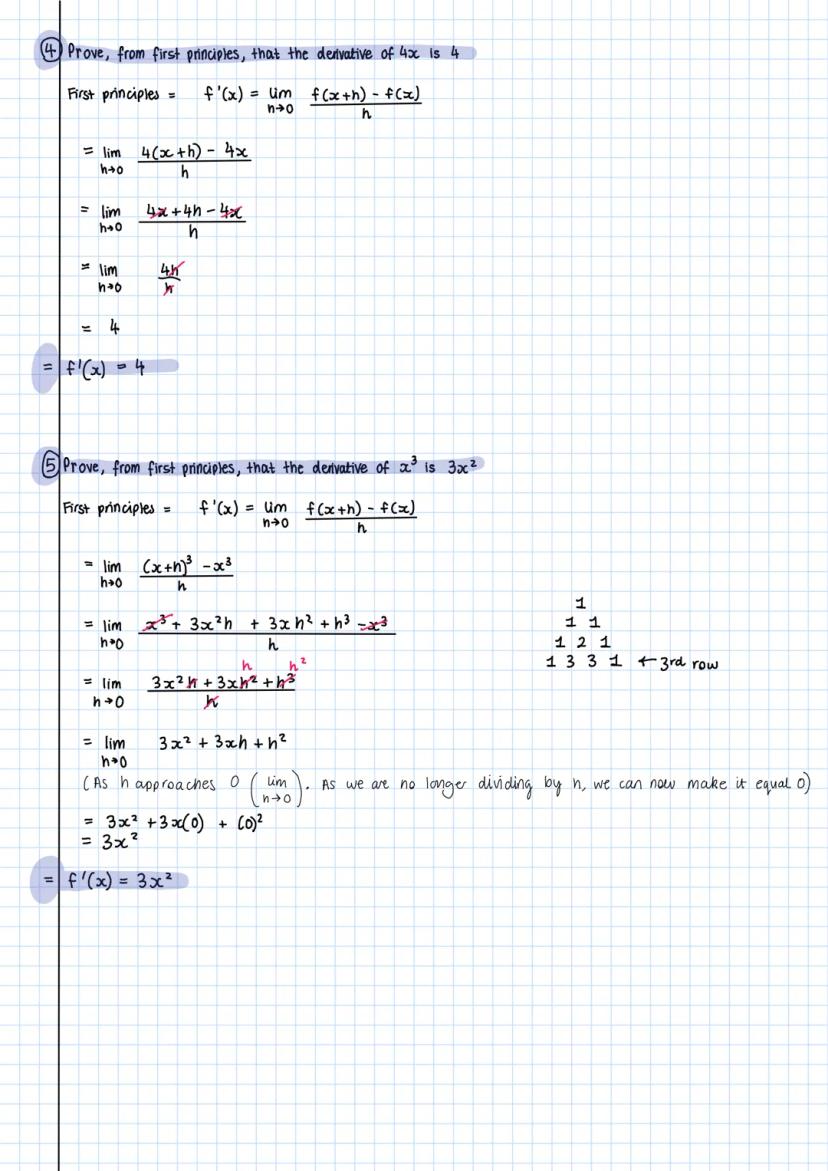 ④ Prove, from first principles, that the derivative of 4x is 4
First principles = f'(x) = lim h→0 (f(x+h) - f(x))/h
= lim h→0 (4(x+h) - 4x)/h
= lim h→0 (4x + 4h - 4x)/h
= lim h→0 4h/h
= 4
= f'(x) = 4
⑤ Prove, from first principles, that the derivative of x³ is 3x²
First principles = f'(x) = lim h→0 (f(x+h) - f(x))/h
= lim h→0 ((x+h)³ - x³)/h
= lim h→0 (x³ + 3x²h + 3xh² + h³ - x³)/h
1
1 1
1 2 1
1 3 3 1 ← 3rd row
h h²
= lim h→0 (3x²h + 3xh² + h³)/h
= lim h→0 3x² + 3xh + h²
(As h approaches 0 (lim h→0). As we are no longer dividing by h, we can now make it equal 0)
= 3x² + 3x(0) + (0)²
= 3x²
= f'(x) = 3x²